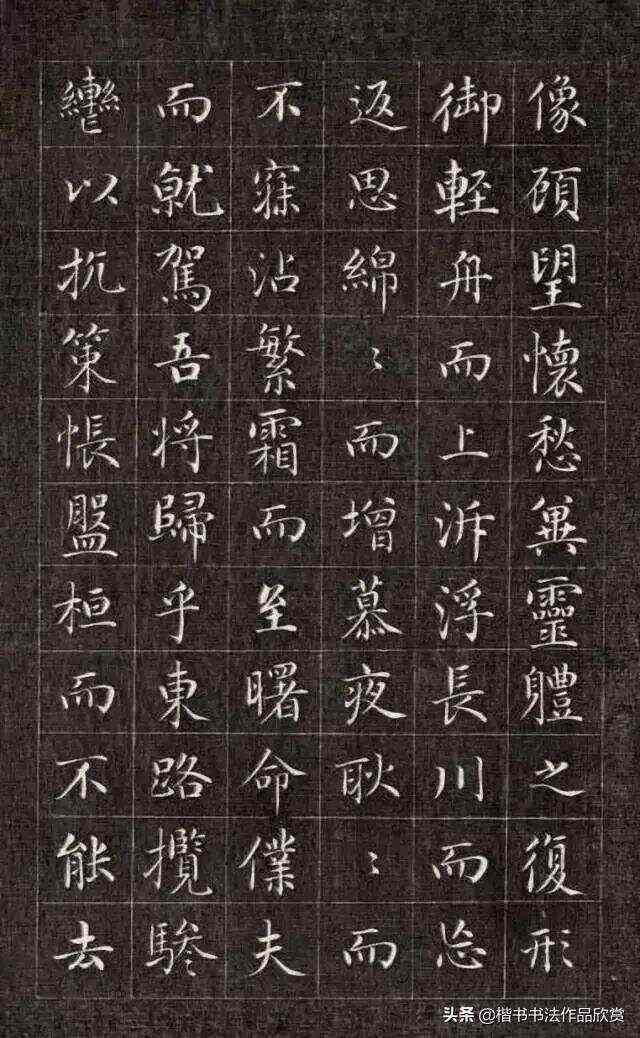 像頋望懷愁兾靈軆之復形
御輕舟而上泝浮長川而忘
返思綿〻而增慕夜耿〻而
不寐沾繁霜而至曙命僕夫
而就駕吾将歸乎東路攬騑
轡以抗策悵盤桓而不能去
头条 @楷书书法作品欣赏